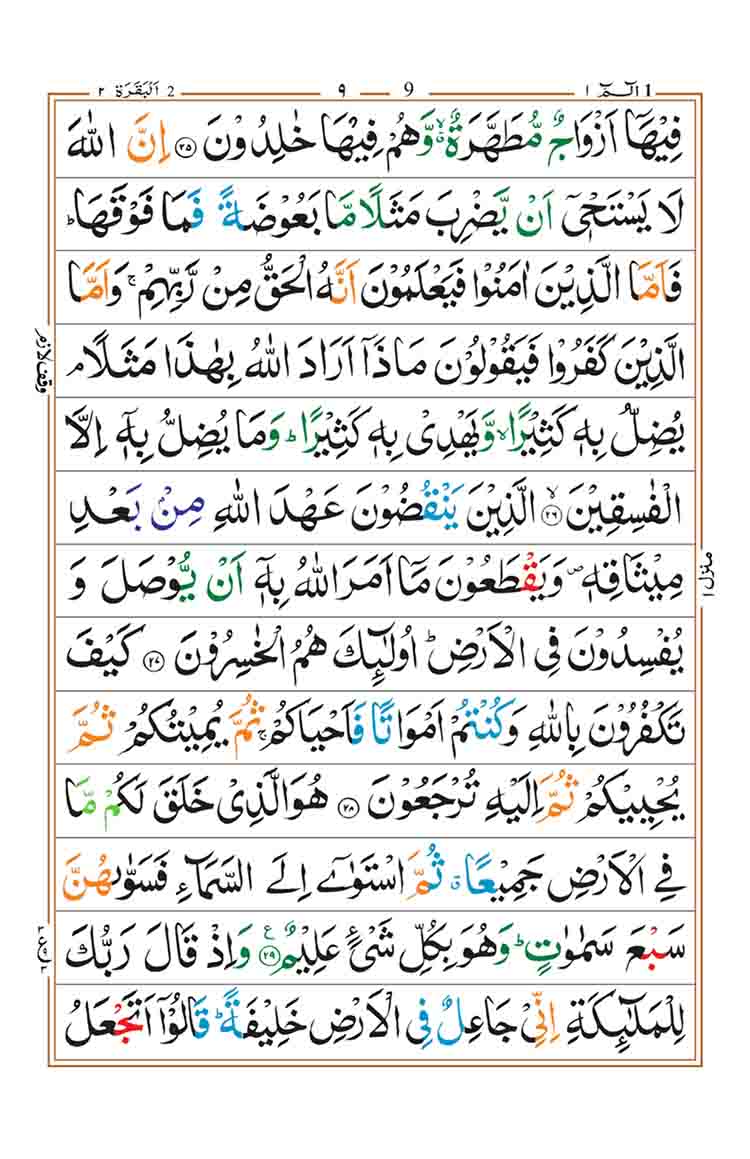 الٓمّٓ ١ 1 9 ٩ 2 اَلْبَقَرَة ٢
فِيْهَاۤ اَزْوَاجٌ مُّطَهَّرَةٌ ۙۗ وَّهُمْ فِيْهَا خٰلِدُوْنَ ۝٢٥ اِنَّ اللّٰهَ
لَا يَسْتَحْيٖۤ اَنْ يَّضْرِبَ مَثَلًا مَّا بَعُوْضَةً فَمَا فَوْقَهَا ؕ
فَاَمَّا الَّذِيْنَ اٰمَنُوْا فَيَعْلَمُوْنَ اَنَّهُ الْحَقُّ مِنْ رَّبِّهِمْ ۚ وَاَمَّا
الَّذِيْنَ كَفَرُوْا فَيَقُوْلُوْنَ مَاذَاۤ اَرَادَ اللّٰهُ بِهٰذَا مَثَلًا ۘ
وقف لازم
يُضِلُّ بِهٖ كَثِيْرًا ۙ وَّيَهْدِيْ بِهٖ كَثِيْرًا ؕ وَمَا يُضِلُّ بِهٖۤ اِلَّا
الْفٰسِقِيْنَ ۝٢٦ ۙ الَّذِيْنَ يَنْقُضُوْنَ عَهْدَ اللّٰهِ مِنْ بَعْدِ
مِيْثَاقِهٖ ۪ وَيَقْطَعُوْنَ مَاۤ اَمَرَ اللّٰهُ بِهٖۤ اَنْ يُّوْصَلَ وَ
منزل ١
يُفْسِدُوْنَ فِي الْاَرْضِ ؕ اُولٰٓئِكَ هُمُ الْخٰسِرُوْنَ ۝٢٧ كَيْفَ
تَكْفُرُوْنَ بِاللّٰهِ وَكُنْتُمْ اَمْوَاتًا فَاَحْيَاكُمْ ۚ ثُمَّ يُمِيْتُكُمْ ثُمَّ
يُحْيِيْكُمْ ثُمَّ اِلَيْهِ تُرْجَعُوْنَ ۝٢٨ هُوَ الَّذِيْ خَلَقَ لَكُمْ مَّا
فِي الْاَرْضِ جَمِيْعًا ۗ ثُمَّ اسْتَوٰۤى اِلَى السَّمَآءِ فَسَوّٰىهُنَّ
سَبْعَ سَمٰوٰتٍ ؕ وَهُوَ بِكُلِّ شَيْءٍ عَلِيْمٌ ۝٢٩ ع وَاِذْ قَالَ رَبُّكَ
لِلْمَلٰٓئِكَةِ اِنِّيْ جَاعِلٌ فِي الْاَرْضِ خَلِيْفَةً ؕ قَالُوْۤا اَتَجْعَلُ